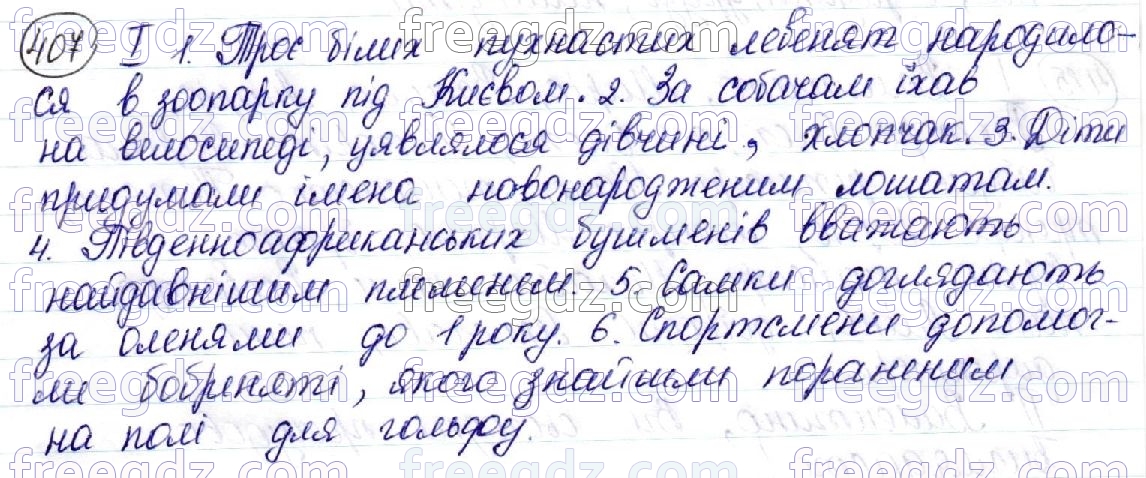 407 I 1. Троє білих пухнастих левенят народило-
ся в зоопарку під Києвом. 2. За собачам їхав
на велосипеді, уявлялося дівчині, хлопчак. 3. Діти
придумали імена новонародженим лошатам.
4. Південноафриканських бушменів вважають
найдавнішим племенем. 5. Самки доглядають
за оленями до 1 року. 6. Спортсмени допомог-
ли бобреняті, якого знайшли пораненим
на полі для гольфу.